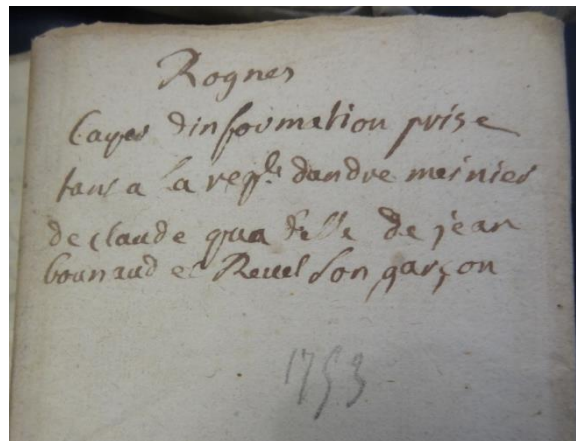 Rognes
Cayer dinformation prise
tant a la reqte dandre meinier
de claude qua celle de jean
bounaud et Revel son garçon
1753